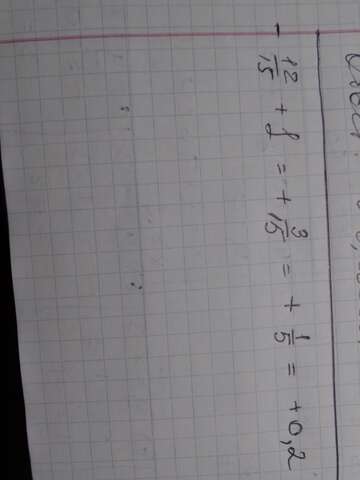 - 12/15 + 1 = + 3/15 = + 1/5 = +0,2